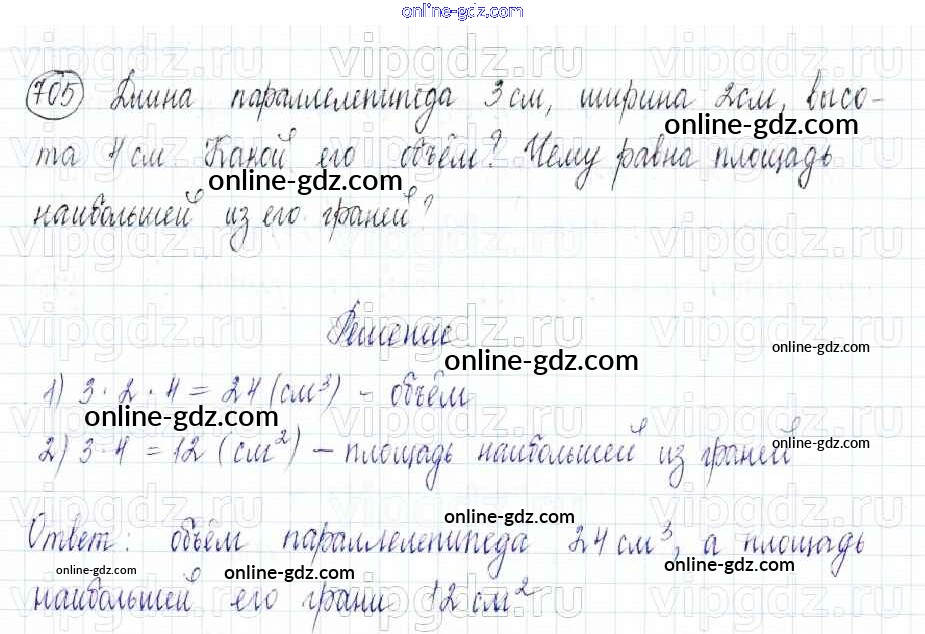 online-gdz.com
705 Длина параллелепипеда 3 см, ширина 2 см, высо-
online-gdz.com
та 4 см. Какой его объём? Чему равна площадь
online-gdz.com
наибольшей из его граней?
vipgdz.ru vipgdz.ru vipgdz.ru vipgdz.ru
Решение
online-gdz.com online-gdz.com
1) 3 · 2 · 4 = 24 (см³) – объём
online-gdz.com
2) 3 · 4 = 12 (см²) – площадь наибольшей из граней
online-gdz.com
online-gdz.com
Ответ: объём параллелепипеда 24 см³, а площадь
online-gdz.com online-gdz.com online-gdz.com
наибольшей его грани 12 см²